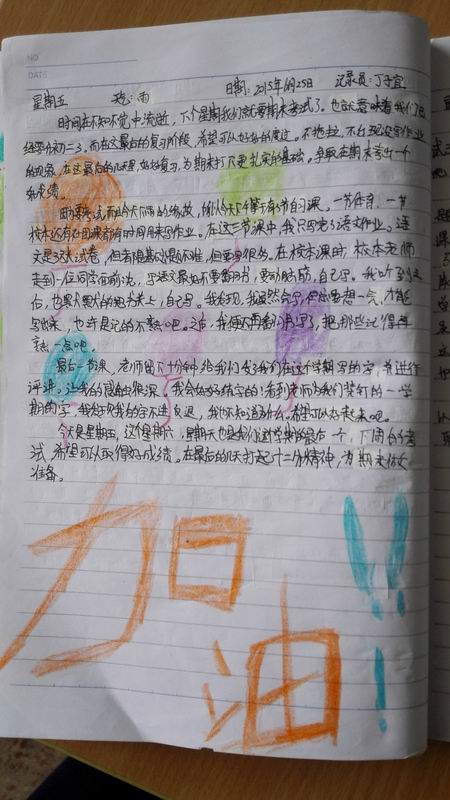 NO
DATE
星期五 天气:雨 日期:2015年6月25日 记录员:丁子宜
时间在不知不觉中流逝,下个星期我们就要期末考试了。也就意味着我们已
经要分初二了,而在这最后的复习阶段,希望可以好好的度过。不拖拉,不出现没写作业
的现象。在这最后的几天里,好好复习,为期末打下更扎实的基础。争取在期末考出一个
好成绩。
由于考试而且今天下雨的缘故,所以今天下午第三节的课。一节体育,一节
校本还有一节班课都有时间用来写作业。在这三节课中,我只写完了语文作业。语
文是张大试卷,但有很基础题不难,但要写很久。在校本课时,校本老师
走到一位同学面前说,写语文最好不要翻书,要动脑筋,自己写。我听了这
后,也默默把书关上,自己写。我发现,我虽然会写,但也要想一会,才能
写出来,也许是记的不熟吧。之后,我便不再翻书写了,把那些记得
熟一点吧。
最后一节课,老师留下十分钟给我们发了我们在这个学期写的字,并进行
评讲。让我的感触很深。我会好好练字的!看到老师为我们装订的一学
期的字,我发现我的字不进反退,我也不知道为什么。希望可以好起来吧。
今天是星期五,这个星期六,星期天也是我们这学期的最后一个,下周的考
试,希望可以取得好成绩。在最后的几天打起十二分精神,为期末做好
准备。
加油!!